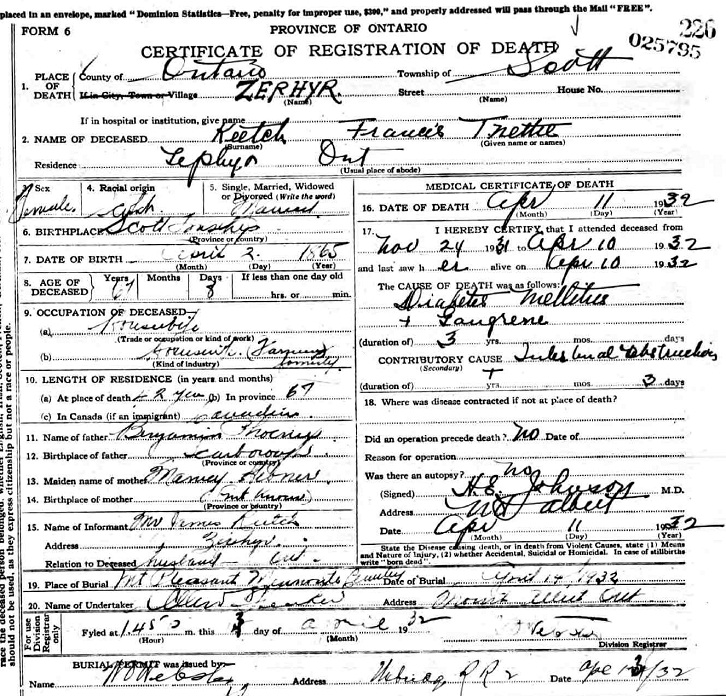 placed in an envelope, marked "Dominion Statistics—Free, penalty for improper use, $300," and properly addressed will pass through the Mail "FREE".
FORM 6
PROVINCE OF ONTARIO
226
025795
CERTIFICATE OF REGISTRATION OF DEATH
1. PLACE OF DEATH County of Ontario Township of Scott
If in City, Town or Village ZEPHYR. Street House No.
(Name) (Name)
If in hospital or institution, give name
2. NAME OF DECEASED Keetch Francis
(Surname) (Given name or names)
Residence Zephyr Ont
(Usual place of abode)
3. Sex Female 4. Racial origin 5. Single, Married, Widowed or Divorced (Write the word) Married
6. BIRTHPLACE Scott Township
(Province or country)
7. DATE OF BIRTH April 2. 1865
(Month) (Day) (Year)
8. AGE OF DECEASED Years 67 Months Days 8 If less than one day old
hrs. or min.
9. OCCUPATION OF DECEASED
(a) Housewife
(Trade or occupation or kind of work)
(b)
(Kind of industry)
10. LENGTH OF RESIDENCE (in years and months)
(a) At place of death 42 years (b) In province 67
(c) In Canada (if an immigrant)
11. Name of father Benjamin
12. Birthplace of father Scarboro
(Province or country)
13. Maiden name of mother
14. Birthplace of mother (not known)
(Province or country)
15. Name of Informant Mr James Keetch
Address Zephyr
Relation to Deceased husband Ont.
19. Place of Burial Mt Pleasant Date of Burial April 14, 1932
20. Name of Undertaker Address Mount Albert Ont
For use Division Registrar only
Fyled at m. this day of April 1932
(Hour) (Month) Division Registrar
BURIAL PERMIT was issued by:
Name Address R R 2 Date /32
MEDICAL CERTIFICATE OF DEATH
16. DATE OF DEATH Apr 11 1932
(Month) (Day) (Year)
17. I HEREBY CERTIFY, that I attended deceased from
Nov 24 1931 to Apr 10 1932
and last saw her alive on Apr 10 1932
The CAUSE OF DEATH was as follows:
Diabetes Mellitus
+ Gangrene
(duration of) 3 yrs. mos. days
CONTRIBUTORY CAUSE Intestinal Obstruction
(Secondary)
(duration of) yrs. mos. 3 days
18. Where was disease contracted if not at place of death?
Did an operation precede death? No Date of
Reason for operation
Was there an autopsy? No
(Signed) H.E. Johnson M.D.
Address Mt Albert
Date Apr 11 1932
(Month) (Day)
State the Disease causing death, or in death from Violent Causes, state (1) Means and Nature of Injury, (2) whether Accidental, Suicidal or Homicidal. In case of stillbirths write "born dead".
race the deceased person belonged, whether English, Irish,
should not be used, as they express citizenship but not a race or people.